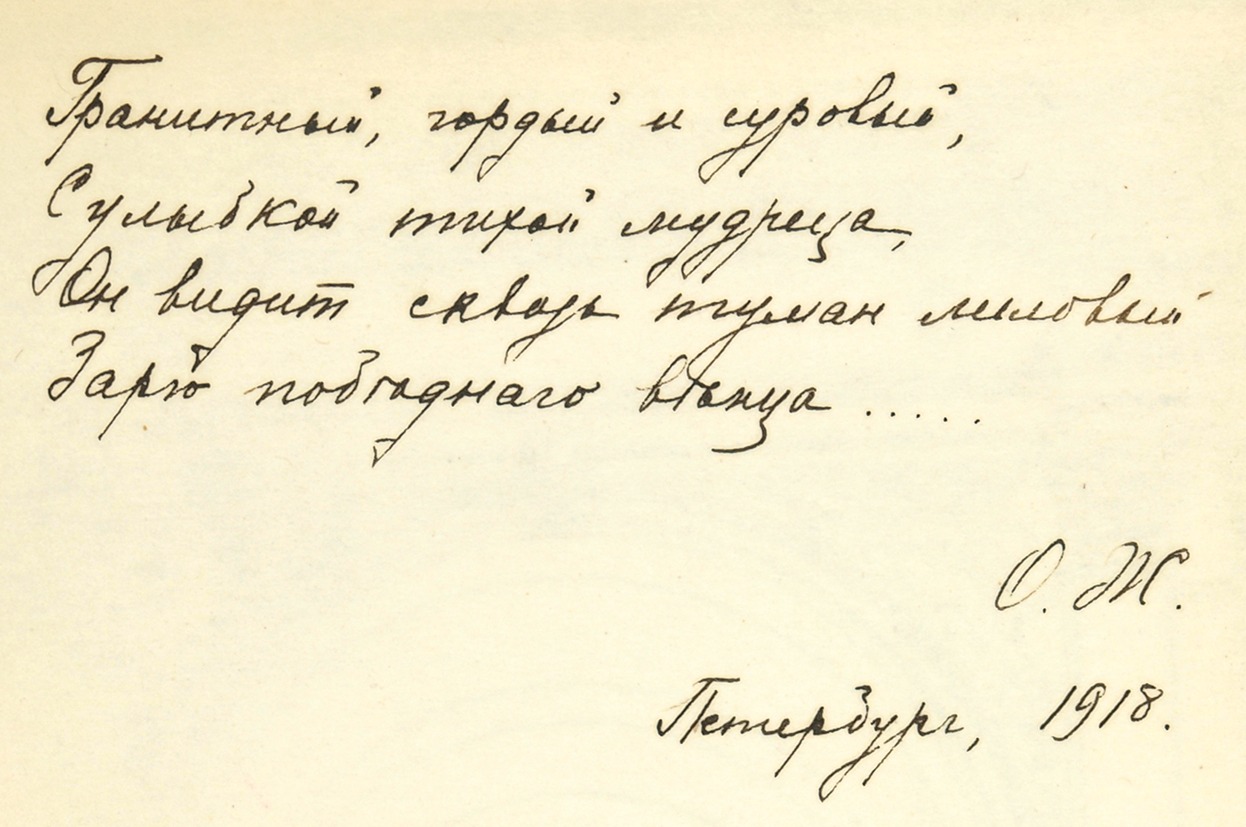 Гранитный, гордый и суровый,
С улыбкой тихой мудреца,
Он видит сквозь туман лиловый
Зарю побѣднаго вѣнца .....
О. Ж.
Петербург, 1918.